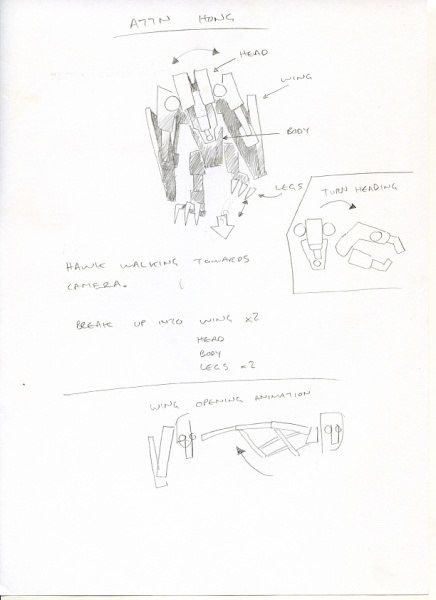 ATTN HONG
HEAD
WING
BODY
LEGS
TURN HEADING
HAWK WALKING TOWARDS
CAMERA.
BREAK UP INTO WING x2
HEAD
BODY
LEGS x2
WING OPENING ANIMATION